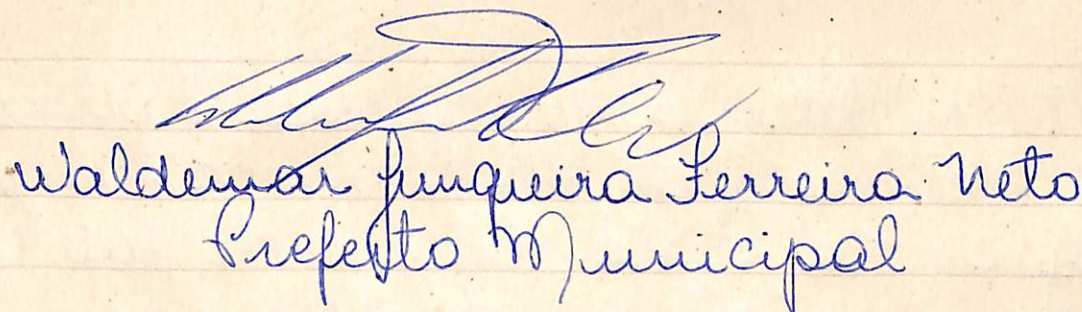 Waldemar Junqueira Ferreira Neto
Prefeito Municipal